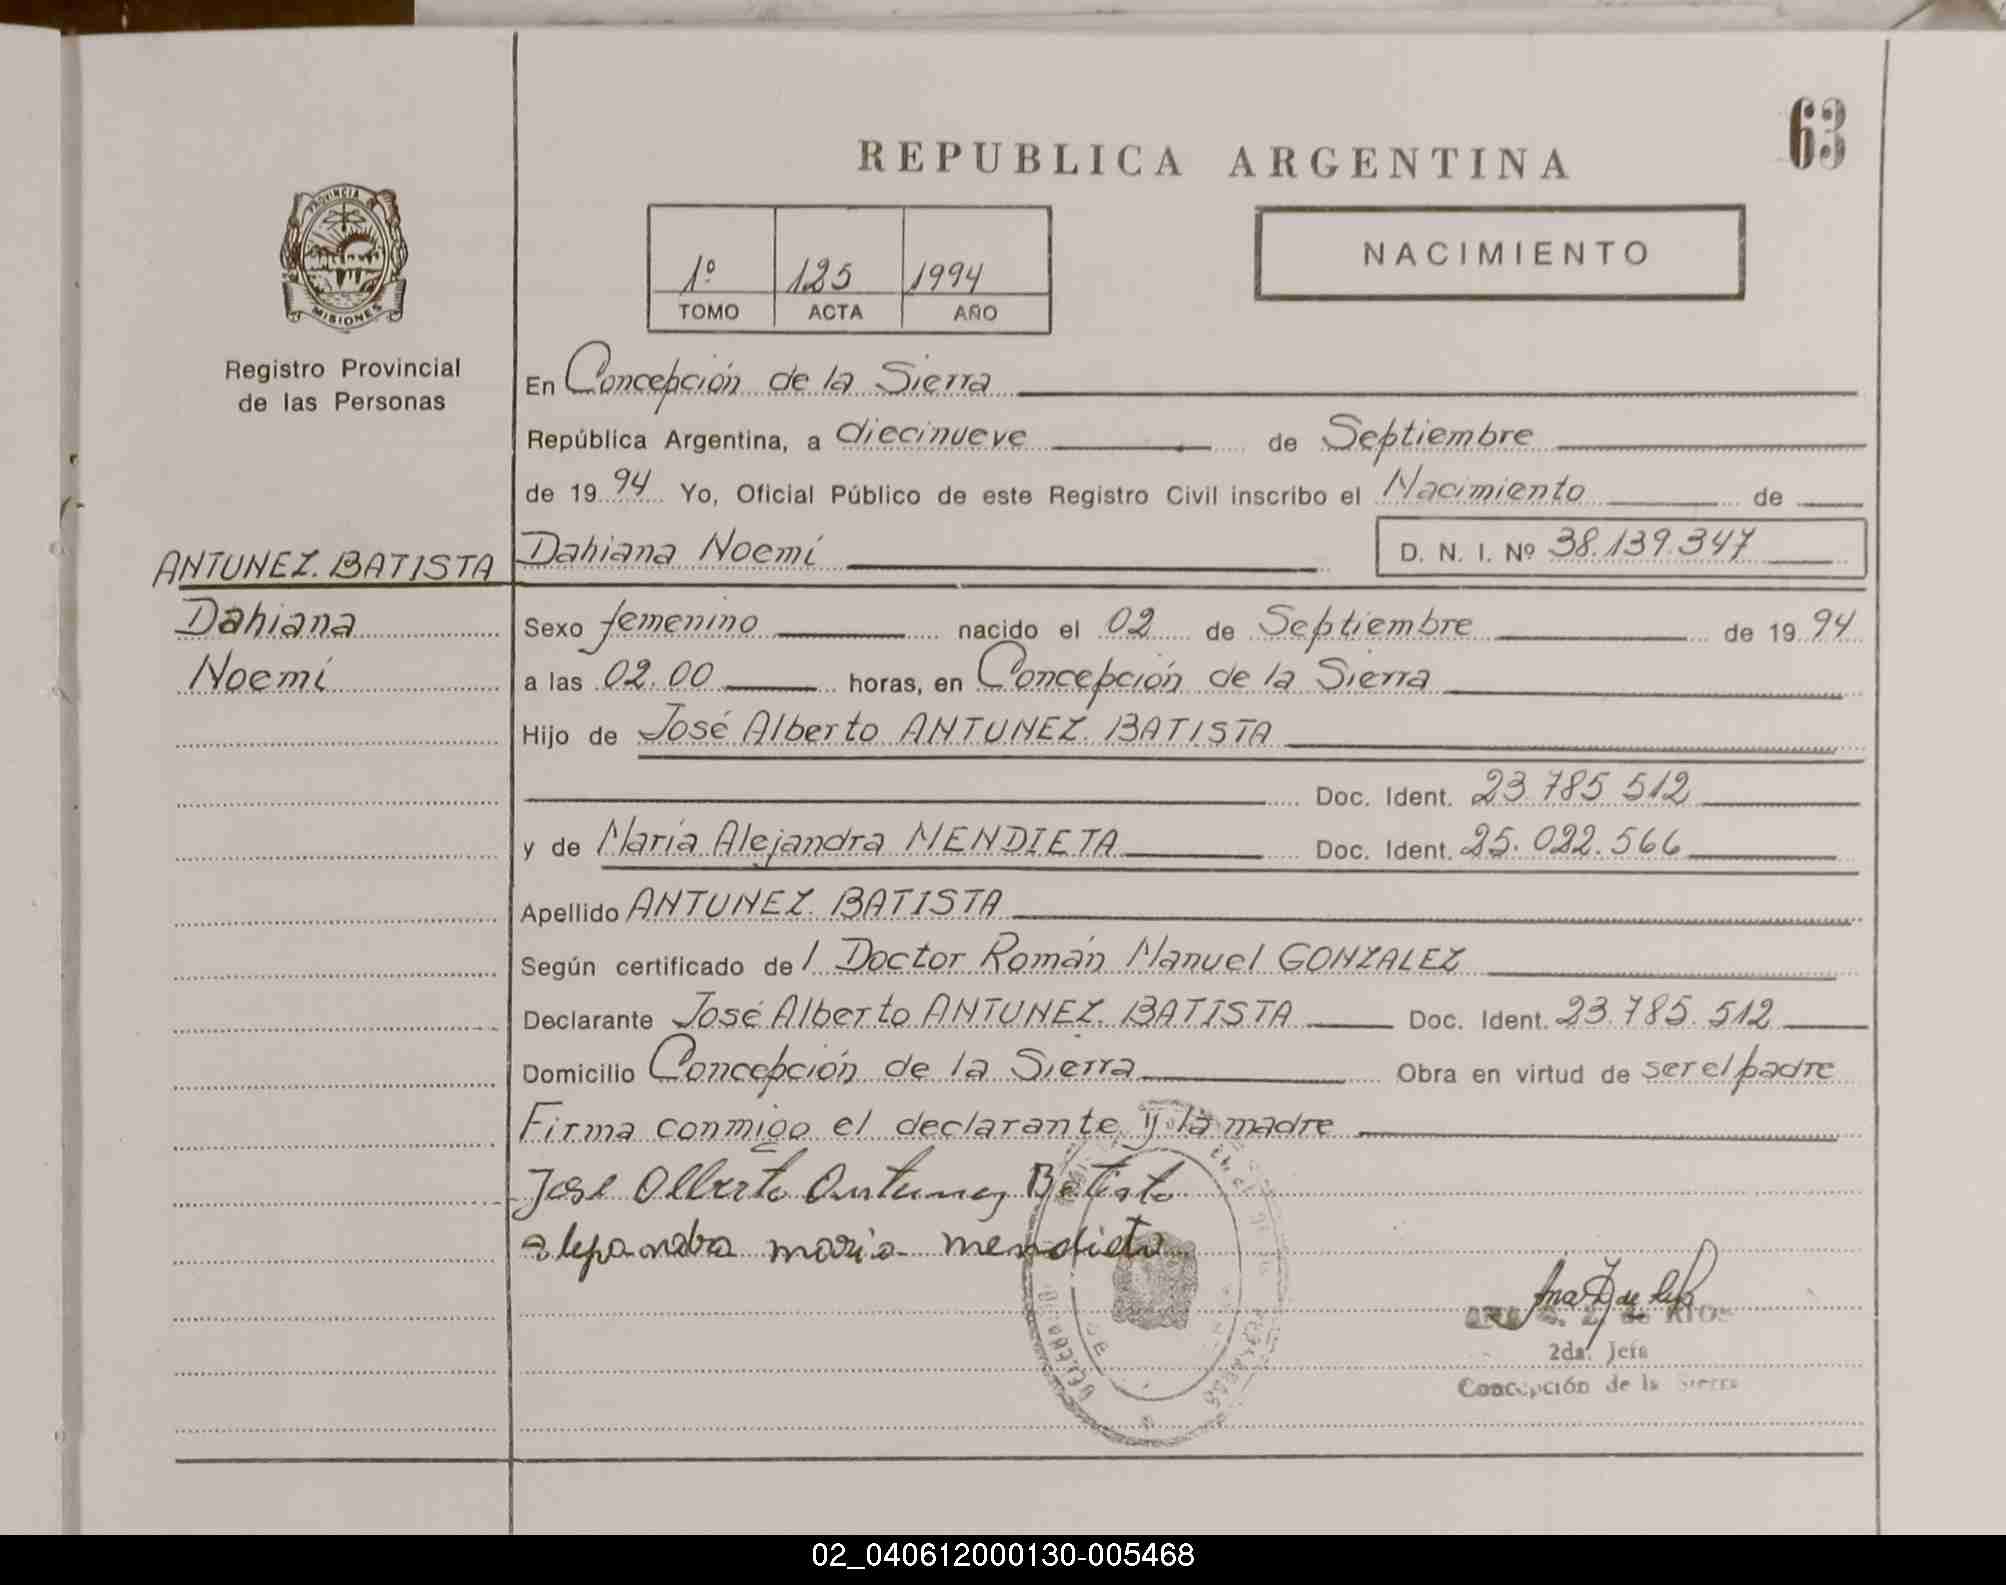 63
REPUBLICA ARGENTINA
PROVINCIA DE
MISIONES
Registro Provincial
de las Personas
1º 125 1994
TOMO ACTA AÑO
NACIMIENTO
En Concepción de la Sierra
República Argentina, a diecinueve de Septiembre
de 19 94 Yo, Oficial Público de este Registro Civil inscribo el Nacimiento de
Dahiana Noemí D. N. I. Nº 38.139.347
ANTUNEZ. BATISTA
Dahiana
Noemí
Sexo femenino nacido el 02 de Septiembre de 19 94
a las 02.00 horas, en Concepción de la Sierra
Hijo de José Alberto ANTUNEZ. BATISTA
Doc. Ident. 23.785.512
y de María Alejandra MENDIETA Doc. Ident. 25.022.566
Apellido ANTUNEZ. BATISTA
Según certificado de l Doctor Román Manuel GONZALEZ
Declarante José Alberto ANTUNEZ. BATISTA Doc. Ident. 23.785.512
Domicilio Concepción de la Sierra Obra en virtud de ser el padre
Firma conmigo el declarante y la madre
Jose Alberto Antunez Batista
alejandra maria mendieta
de RIOS
2da. Jefa
Concepción de la Sierra
02_040612000130-005468